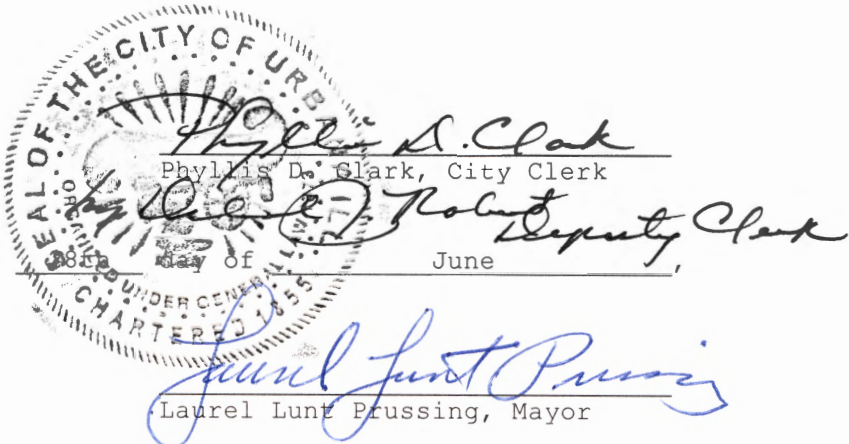 SEAL OF THE CITY OF URB
ORGANIZED UNDER GENERAL LAW 1871
CHARTERED 1855
Phyllis D. Clark
Phyllis D. Clark, City Clerk
by J. Robert Deputy Clerk
28th day of June ,
Laurel Lunt Prussing
Laurel Lunt Prussing, Mayor